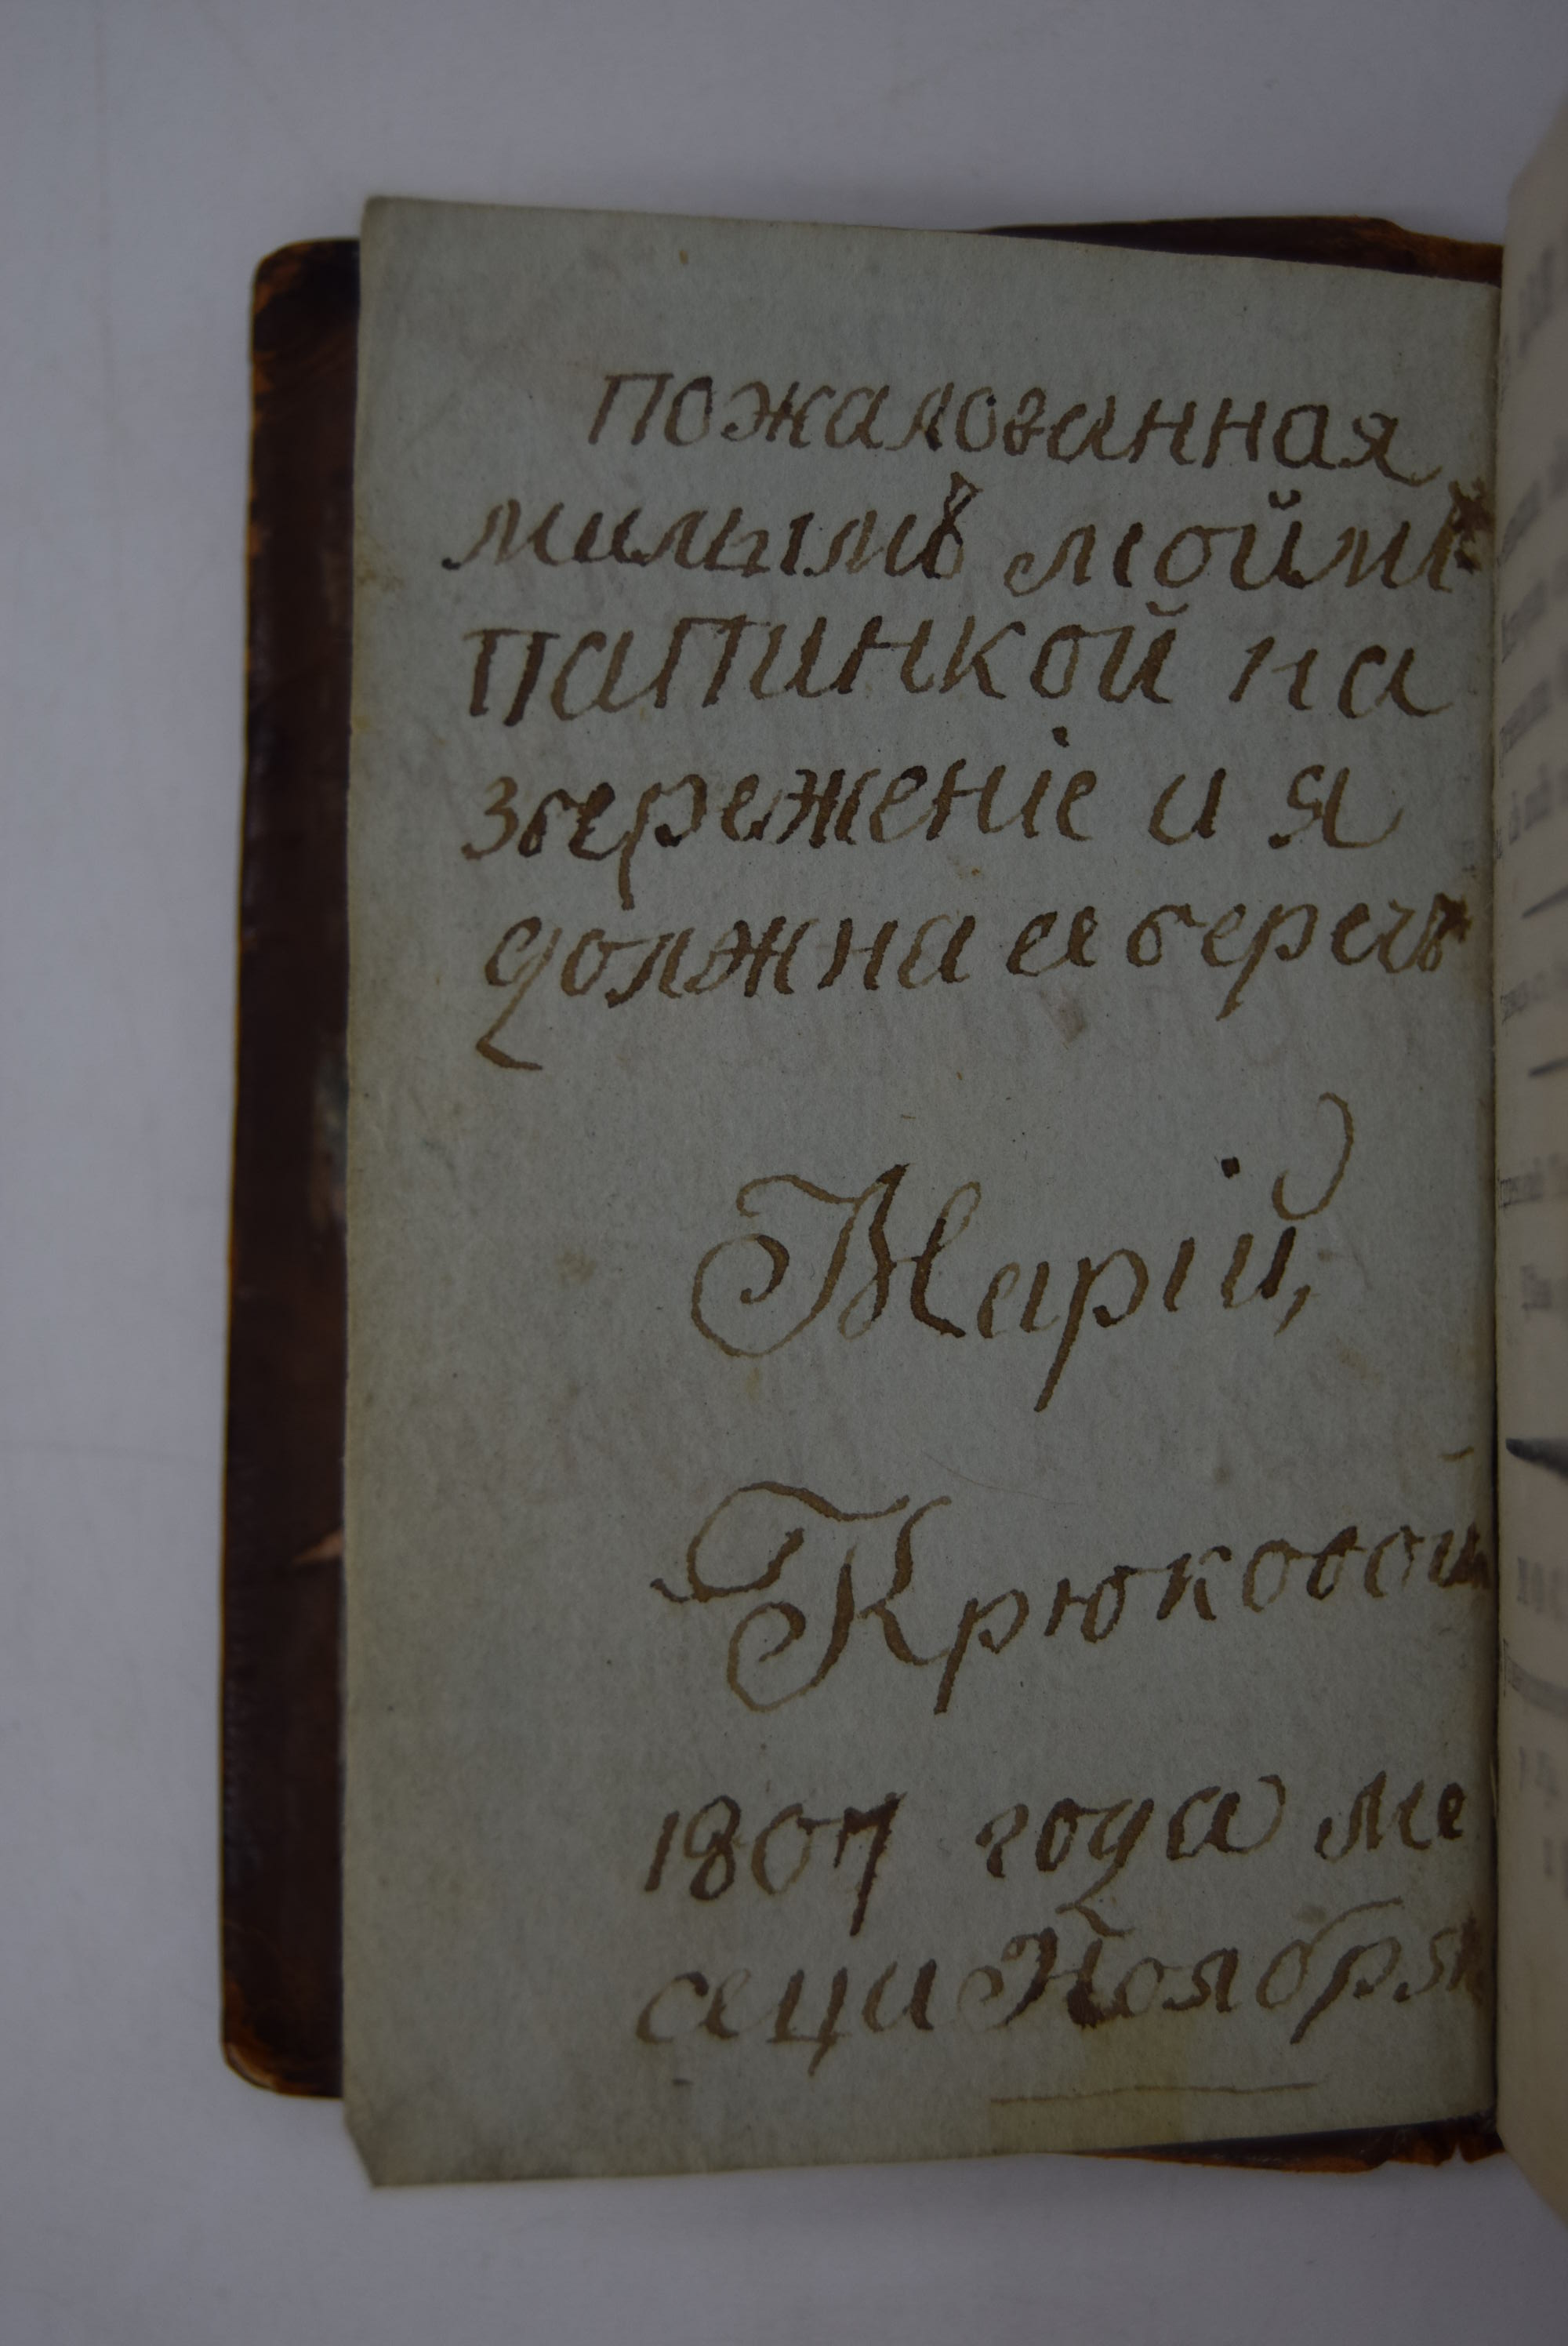 пожалованная
милымъ моймъ
папинкой на
збережение и я
должна ея беречь
Марій,
Крюковой
1807 года ме
сеци Ноября